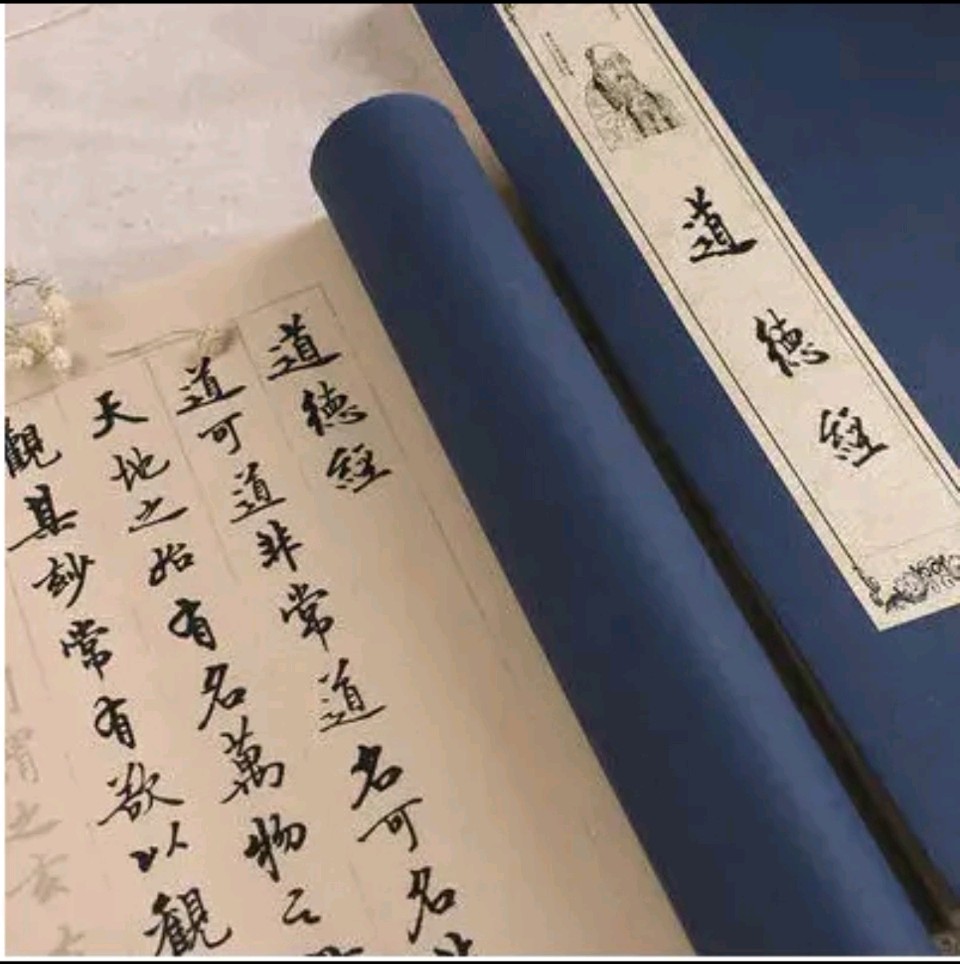 道德經
道可道非常道名可名
天地之始有名萬物之
觀其妙常有欲以觀
謂之玄
道德經